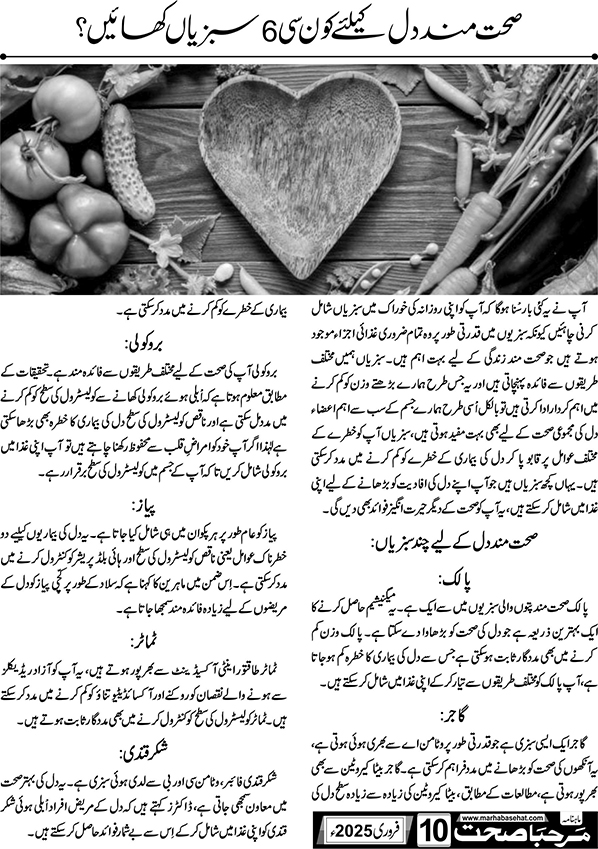 صحت مند دل کیلئے کون سی 6 سبزیاں کھائیں؟
آپ نے یہ کئی بار سُنا ہوگا کہ آپ کو اپنی روزانہ کی خوراک میں سبزیاں شامل
کرنی چاہئیں کیونکہ سبزیوں میں قدرتی طور پر وہ تمام ضروری غذائی اجزاء موجود
ہوتے ہیں جو صحت مند زندگی کے لیے بہت اہم ہیں۔ سبزیاں ہمیں مختلف
طریقوں سے فائدہ پہنچاتی ہیں اور یہ جس طرح ہمارے بڑھتے وزن کو کم کرنے
میں اہم کردار ادا کرتی ہیں تو بالکل اُسی طرح ہمارے جسم کے سب سے اہم اعضاء
دل کی مجموعی صحت کے لیے بھی بہت مفید ہوتی ہیں، سبزیاں آپ کو خطرے کے
مختلف عوامل پر قابو پا کر دل کی بیماری کے خطرے کو کم کرنے میں مدد کر سکتی
ہیں۔ یہاں کچھ سبزیاں ہیں جو آپ اپنے دل کی افادیت کو بڑھانے کے لیے اپنی غذا
میں شامل کر سکتے ہیں، یہ آپ کو صحت کے دیگر حیرت انگیز فوائد بھی دیں گی۔
صحت مند دل کے لیے چند سبزیاں:
پالک:
پالک صحت مند پتوں والی سبزیوں میں سے ایک ہے۔ یہ میگنیشیم حاصل کرنے کا
ایک بہترین ذریعہ ہے جو دل کی صحت کو بڑھاوا دے سکتا ہے۔ پالک وزن کم
کرنے میں بھی مددگار ثابت ہوسکتی ہے جس سے دل کی بیماری کا خطرہ کم ہوجاتا
ہے، آپ پالک کو مختلف طریقوں سے تیار کر کے اپنی غذا میں شامل کر سکتے ہیں۔
گاجر:
گاجر ایک ایسی سبزی ہے جو قدرتی طور پر وٹامن اے سے بھری ہوئی ہوتی ہے،
یہ آنکھوں کی صحت کو بڑھانے میں مدد فراہم کر سکتی ہے۔ گاجر بیٹا کیروٹین سے بھی
بھرپور ہوتی ہے، مطالعات کے مطابق، بیٹا کیروٹین کی زیادہ سے زیادہ سطح دل کی
بیماری کے خطرے کو کم کرنے میں مدد کر سکتی ہے۔
بروکولی:
بروکولی آپ کی صحت کے لیے مختلف طریقوں سے فائدہ مند ہے۔ تحقیقات کے
مطابق معلوم ہوتا ہے کہ اُبلی ہوئے بروکولی کھانے سے کولیسٹرول کی سطح کو کم کرنے
میں مدد مل سکتی ہے اور ناقص کولیسٹرول کی سطح دل کی بیماری کا خطرہ بھی بڑھا سکتی
ہے لہٰذا اگر آپ خود کو امراضِ قلب سے محفوظ رکھنا چاہتے ہیں تو آپ اپنی غذا میں
بروکولی شامل کریں تاکہ آپ کے جسم میں کولیسٹرول کی سطح برقرار رہے۔
پیاز:
پیاز کو عام طور پر ہر پکوان میں ہی شامل کیا جاتا ہے۔ یہ دل کی بیماریوں کیلیے دو
خطرناک عوامل یعنی ناقص کولیسٹرول کی سطح اور ہائی بلڈ پریشر کو کنٹرول کرنے میں
مدد کر سکتی ہے۔ اِس ضمن میں ماہرین کا کہنا ہے کہ سلاد کے طور پر کچی پیاز کو دل کے
مریضوں کے لیے زیادہ فائدہ مند سمجھا جاتا ہے۔
ٹماٹر:
ٹماٹر طاقتور اینٹی آکسیڈینٹ سے بھرپور ہوتے ہیں، یہ آپ کو آزاد ریڈیکلز
سے ہونے والے نقصان کو روکنے اور آکسائڈیٹیو تناؤ کو کم کرنے میں مدد کر سکتے
ہیں۔ ٹماٹر کولیسٹرول کی سطح کو کنٹرول کرنے میں بھی مددگار ثابت ہوتے ہیں۔
شکر قندی:
شکر قندی فائبر، وٹامن سی اور بی سے لدی ہوئی سبزی ہے۔ یہ دل کی بہتر صحت
میں معاون سمجھی جاتی ہے، ڈاکٹرز کہتے ہیں کہ دل کے مریض افراد اُبلی ہوئی شکر
قندی کو اپنی غذا میں شامل کر کے اِس سے بے شمار فوائد حاصل کر سکتے ہیں۔
ماہنامہ
www.marhabasehat.com
مرحبا صحت
10
فروری 2025ء